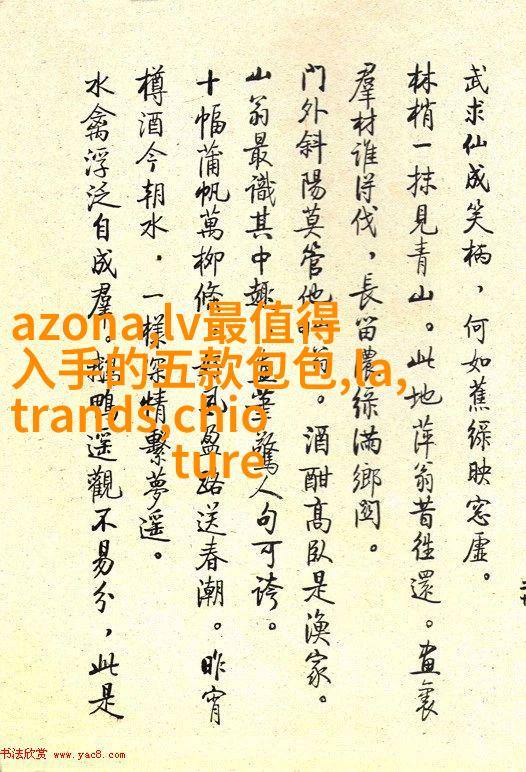 武求仙成笑柄，何如蕉綠映窓虛。
林梢一抹見青山。此地萍翁昔徃還。畫裏
羣材誰淂伐，長留濃綠滿鄉閭。
門外斜陽莫管他
翁。酒酣高臥是漁家。
山翁最識其中趣
驚人句可誇。
十幅蒲帆萬柳條
風盈路送春潮。昨宵
樽酒今朝水，一樣深情繫夢遥。
水禽浮泛自成羣。鵝鴨遥觀不易分，此是
azona,lv最值得
入手的五款包包,la,
trands,chio
ture
书法欣赏 www.yac8.com